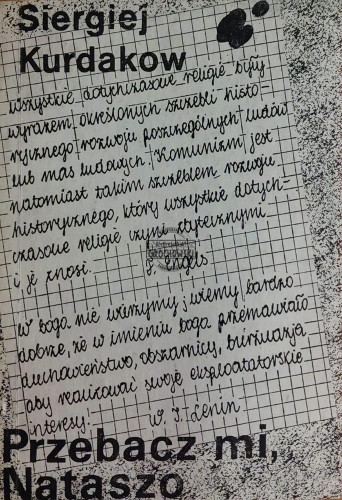 Siergiej
Kurdakow
Wszystkie dotychczasowe religie były
wyrazem określonych szczebli histo-
rycznego rozwoju poszczególnych ludów
lub mas ludowych. Komunizm jest
natomiast takim szczeblem rozwoju
historycznego, który wszystkie dotych-
czasowe religie czyni zbytecznymi
i je znosi. F. Engels
ANTYKWARIAT
GROCHOWSKI
W boga nie wierzymy i wiemy bardzo
dobrze, że w imieniu boga przemawiało
duchowieństwo, obszarnicy, burżuazja
aby realizować swoje eksploatatorskie
interesy! W. I. Lenin
Przebacz mi,
Nataszo